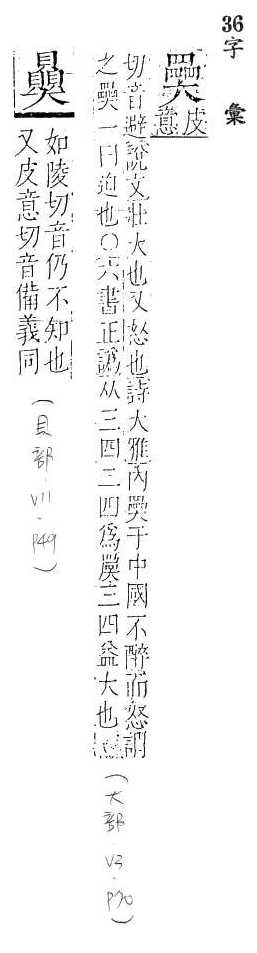 36
字彙
奰 皮意
切音避說文壯大也又怒也詩大雅內奰于中國不醉而怒謂
之奰一曰迫也〇六書正譌从三四三四爲奰三四益大也
(大部.V3.P70)
如陵切音仍不知也
又皮意切音備義同
(貝部.VII.P49)